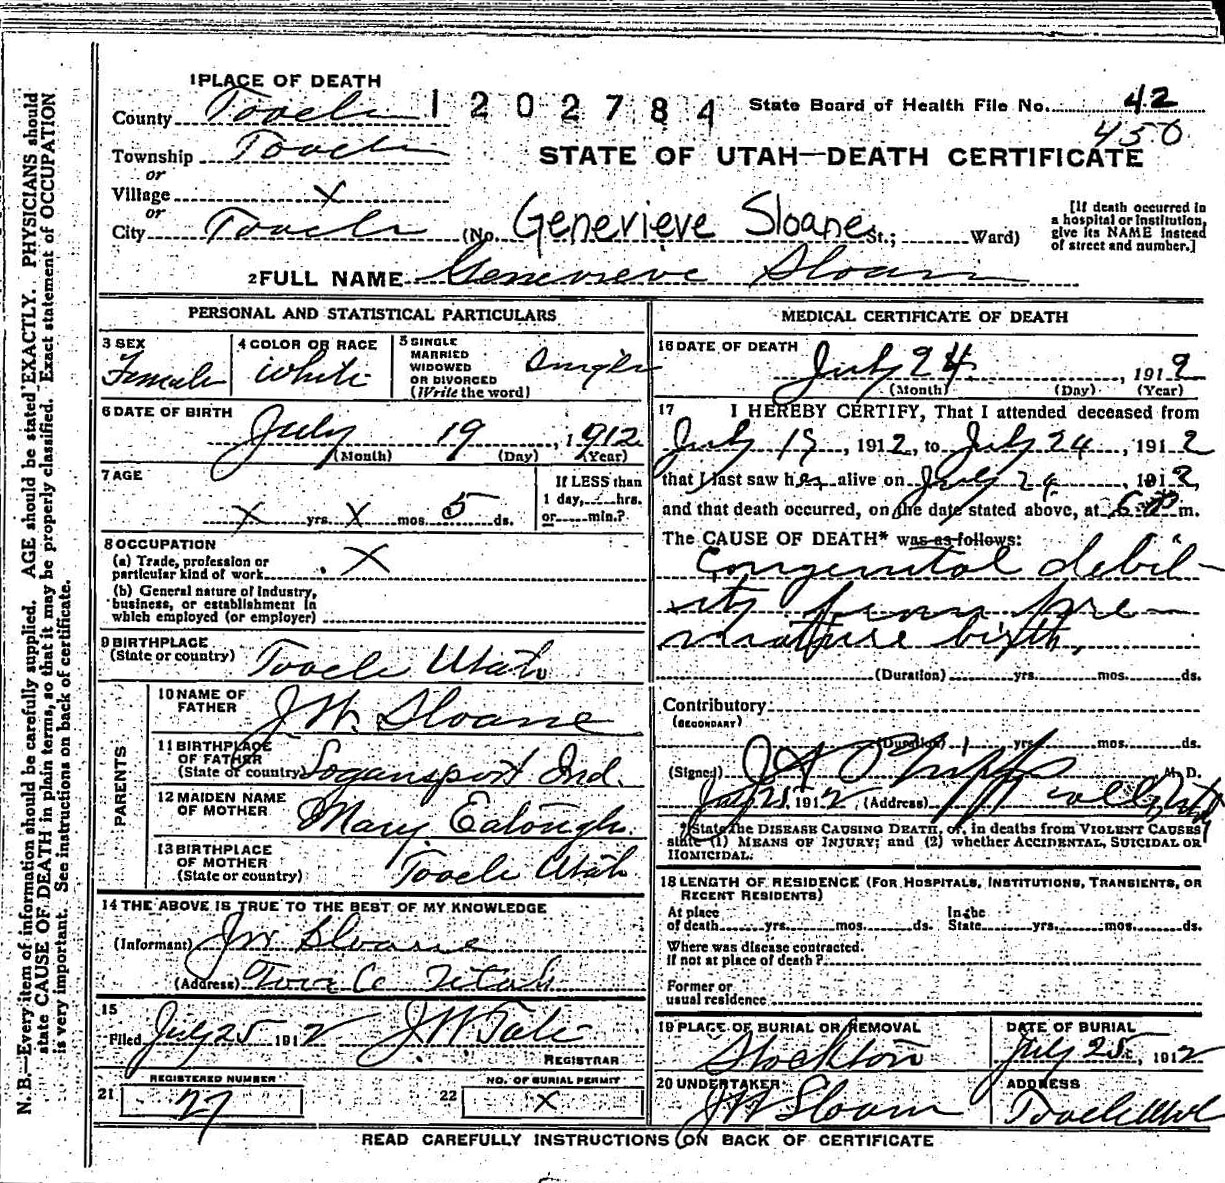 1 PLACE OF DEATH
County Tooele 1202784 State Board of Health File No. 42
450
Township Tooele
or
STATE OF UTAH—DEATH CERTIFICATE
Village X
or
City Tooele (No. Genevieve Sloane St.; Ward)
[If death occurred in a hospital or institution, give its NAME instead of street and number.]
2 FULL NAME Genevieve Sloan
PERSONAL AND STATISTICAL PARTICULARS
3 SEX Female
4 COLOR OR RACE White
5 SINGLE MARRIED WIDOWED OR DIVORCED (Write the word) Single
6 DATE OF BIRTH
July 19, 1912
(Month) (Day) (Year)
7 AGE
X yrs. X mos. 5 ds.
If LESS than 1 day, hrs. or min.?
8 OCCUPATION X
(a) Trade, profession or particular kind of work
(b) General nature of industry, business, or establishment in which employed (or employer)
9 BIRTHPLACE
(State or country) Tooele Utah
PARENTS
10 NAME OF FATHER J.W. Sloane
11 BIRTHPLACE OF FATHER (State or country) Logansport Ind.
12 MAIDEN NAME OF MOTHER Mary
13 BIRTHPLACE OF MOTHER (State or country) Tooele Utah
14 THE ABOVE IS TRUE TO THE BEST OF MY KNOWLEDGE
(Informant) JW Sloane
(Address) Tooele Utah
15
Filed July 25 1912 J W Tate
REGISTRAR
21 REGISTERED NUMBER 27
22 NO. OF BURIAL PERMIT X
MEDICAL CERTIFICATE OF DEATH
16 DATE OF DEATH
July 24, 1912
(Month) (Day) (Year)
17 I HEREBY CERTIFY, That I attended deceased from
July 19, 1912, to July 24, 1912
that I last saw her alive on July 24, 1912,
and that death occurred, on the date stated above, at 6 m.
The CAUSE OF DEATH* was as follows:
Congenital debil-
ity from pre-
mature birth,
(Duration) yrs. mos. ds.
Contributory
(SECONDARY)
(Duration) yrs. mos. ds.
(Signed) M. D.
July 25, 1912 (Address) Tooele, Utah
*State the DISEASE CAUSING DEATH, or, in deaths from VIOLENT CAUSES
state (1) MEANS OF INJURY; and (2) whether ACCIDENTAL, SUICIDAL OR
HOMICIDAL.
18 LENGTH OF RESIDENCE (FOR HOSPITALS, INSTITUTIONS, TRANSIENTS, OR
RECENT RESIDENTS)
At place of death yrs. mos. ds. In the State yrs. mos. ds.
Where was disease contracted
if not at place of death?
Former or
usual residence
19 PLACE OF BURIAL OR REMOVAL Stockton
DATE OF BURIAL July 25, 1912
20 UNDERTAKER JW Sloan
ADDRESS Tooele Utah
READ CAREFULLY INSTRUCTIONS ON BACK OF CERTIFICATE
N. B.—Every item of information should be carefully supplied. AGE should be stated EXACTLY. PHYSICIANS should
state CAUSE OF DEATH in plain terms, so that it may be properly classified. Exact statement of OCCUPATION
is very important. See instructions on back of certificate.